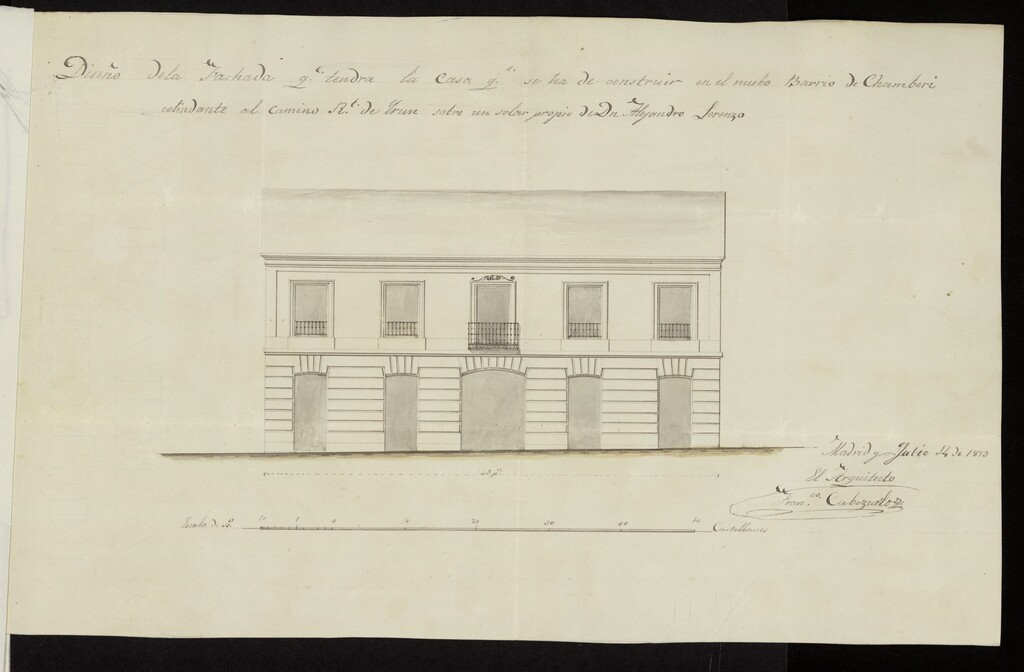 Diseño dela Fachada q.e tendra la Casa q.e se ha de construir en el nuebo Barrio de Chamberi
colindante al Camino R.l de Yrun sobre un solar propio de Dn Alejandro Lorenzo
Madrid y Julio 14 de
El Arquitecto
Fran.co Cabezuelo
Escala de P.s 10 5 0 10 20 30 40 50 Castellanos